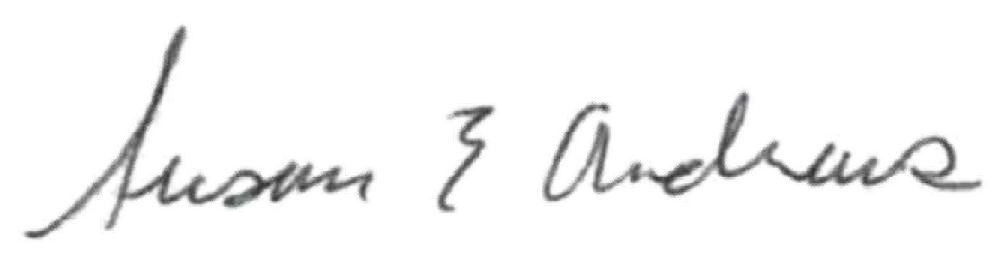 Susan E Andrews